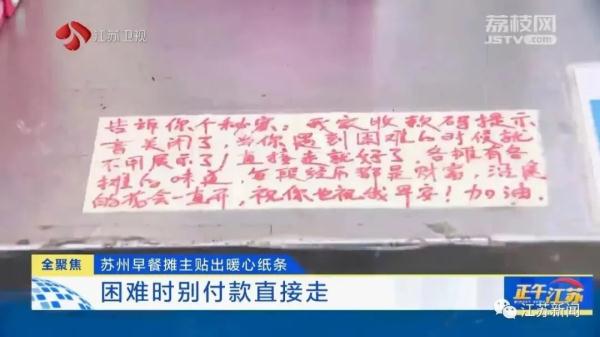 江苏卫视
荔枝网
JSTV.com
告诉你个秘密：我家收款码提示
音关闭了，当你遇到困难的时候就
不用展示了！直接走就好了，各摊有各
摊的味道，每段经历都是财富，淫雨
的花会一直开，祝你也祝我早安！加油．
全聚焦
苏州早餐摊主贴出暖心纸条
困难时别付款直接走
正午江苏
江苏新闻